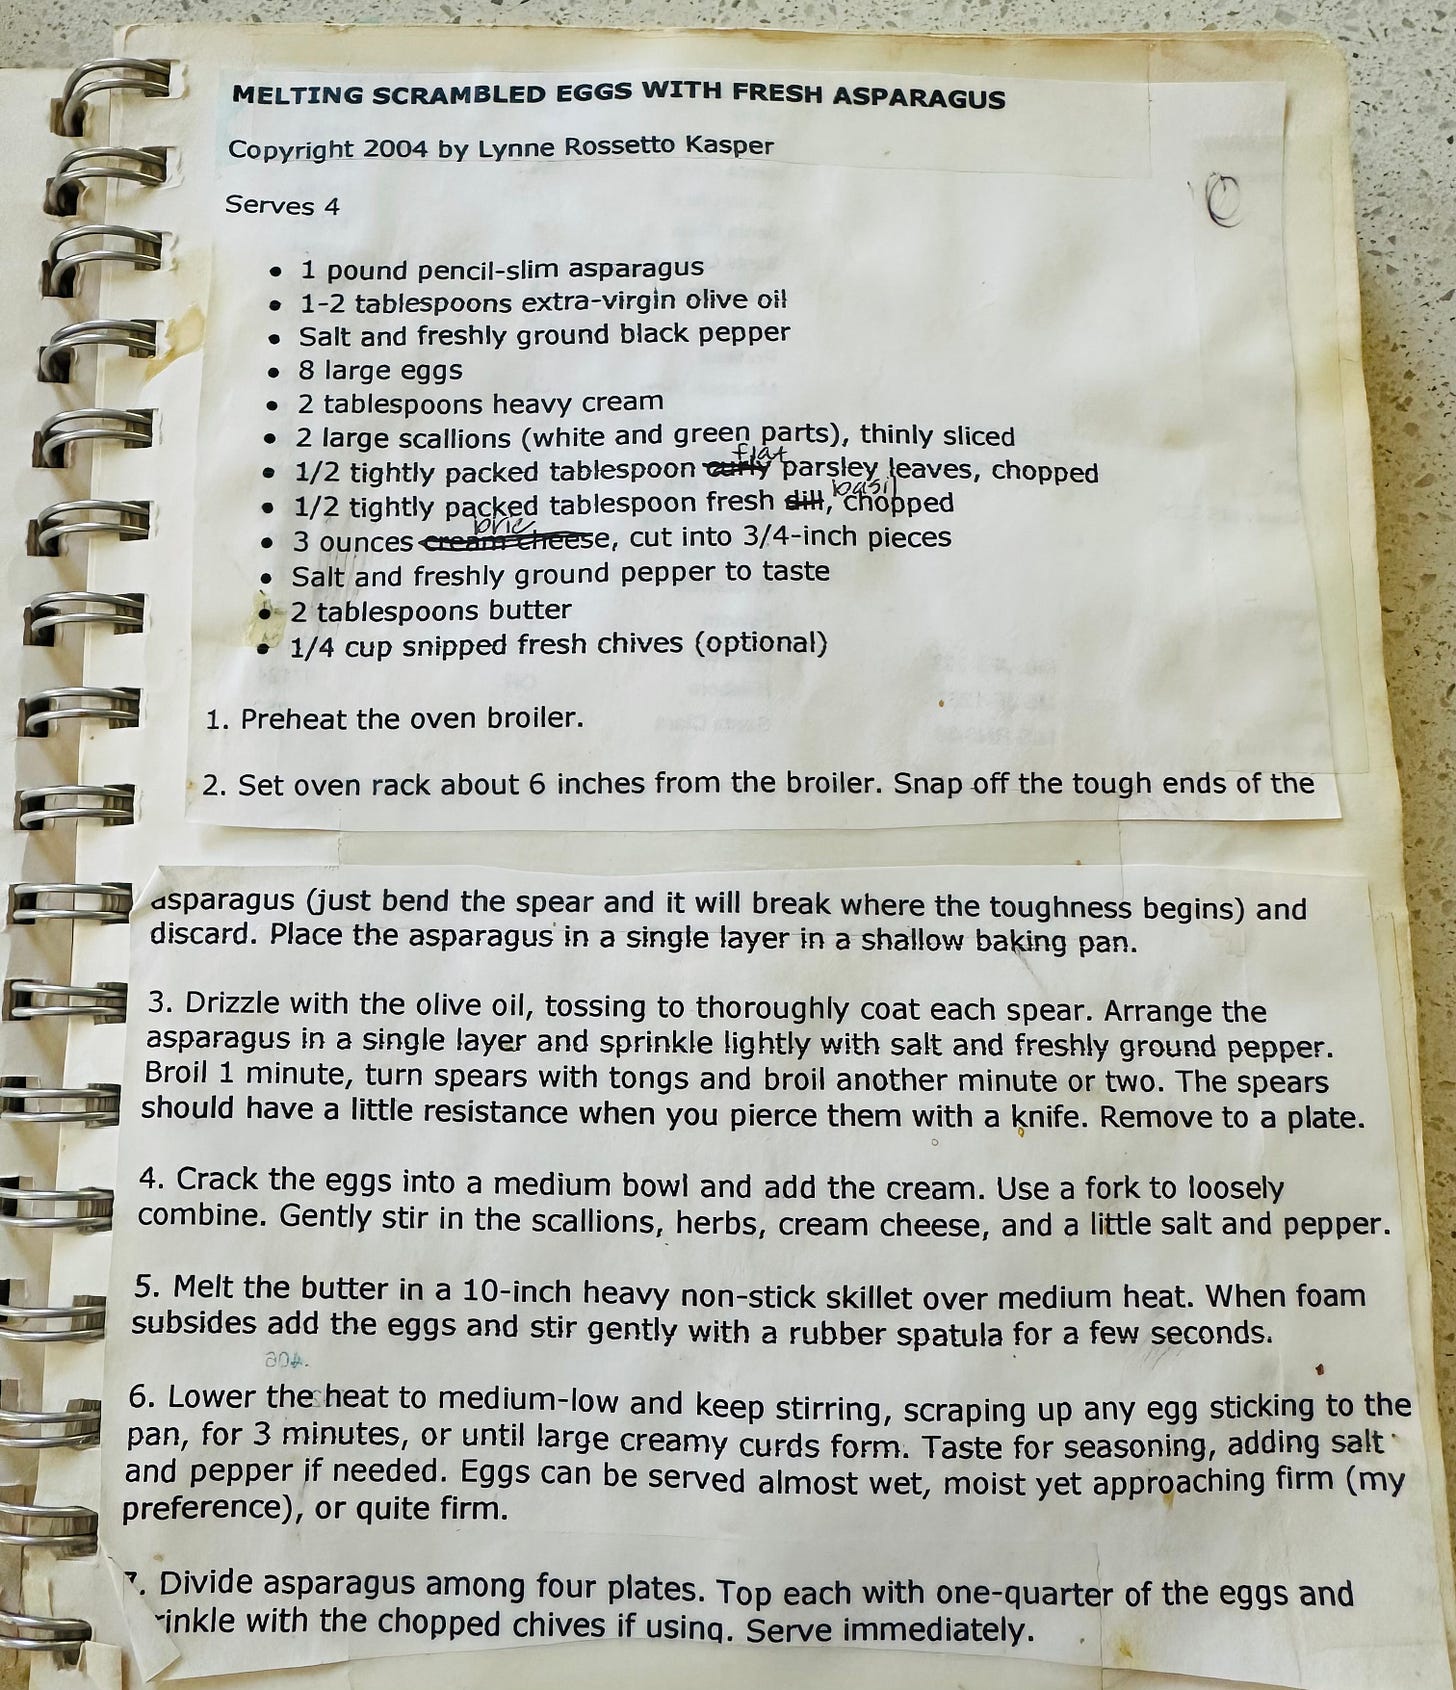 MELTING SCRAMBLED EGGS WITH FRESH ASPARAGUS
Copyright 2004 by Lynne Rossetto Kasper
Serves 4
• 1 pound pencil-slim asparagus
• 1-2 tablespoons extra-virgin olive oil
• Salt and freshly ground black pepper
• 8 large eggs
• 2 tablespoons heavy cream
• 2 large scallions (white and green parts), thinly sliced
flat
• 1/2 tightly packed tablespoon curly parsley leaves, chopped
basil
• 1/2 tightly packed tablespoon fresh dill, chopped
brie
• 3 ounces cream cheese, cut into 3/4-inch pieces
• Salt and freshly ground pepper to taste
• 2 tablespoons butter
• 1/4 cup snipped fresh chives (optional)
1. Preheat the oven broiler.
2. Set oven rack about 6 inches from the broiler. Snap off the tough ends of the
asparagus (just bend the spear and it will break where the toughness begins) and
discard. Place the asparagus in a single layer in a shallow baking pan.
3. Drizzle with the olive oil, tossing to thoroughly coat each spear. Arrange the
asparagus in a single layer and sprinkle lightly with salt and freshly ground pepper.
Broil 1 minute, turn spears with tongs and broil another minute or two. The spears
should have a little resistance when you pierce them with a knife. Remove to a plate.
4. Crack the eggs into a medium bowl and add the cream. Use a fork to loosely
combine. Gently stir in the scallions, herbs, cream cheese, and a little salt and pepper.
5. Melt the butter in a 10-inch heavy non-stick skillet over medium heat. When foam
subsides add the eggs and stir gently with a rubber spatula for a few seconds.
6. Lower the heat to medium-low and keep stirring, scraping up any egg sticking to the
pan, for 3 minutes, or until large creamy curds form. Taste for seasoning, adding salt
and pepper if needed. Eggs can be served almost wet, moist yet approaching firm (my
preference), or quite firm.
7. Divide asparagus among four plates. Top each with one-quarter of the eggs and
rinkle with the chopped chives if using. Serve immediately.